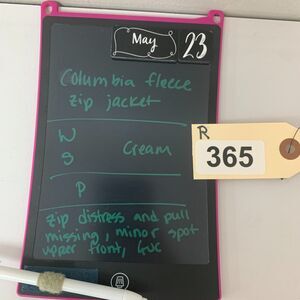 May 23
Columbia fleece
zip jacket
W
S Cream
P
zip distress and pull
missing, minor spot
upper front, GUC
R
365